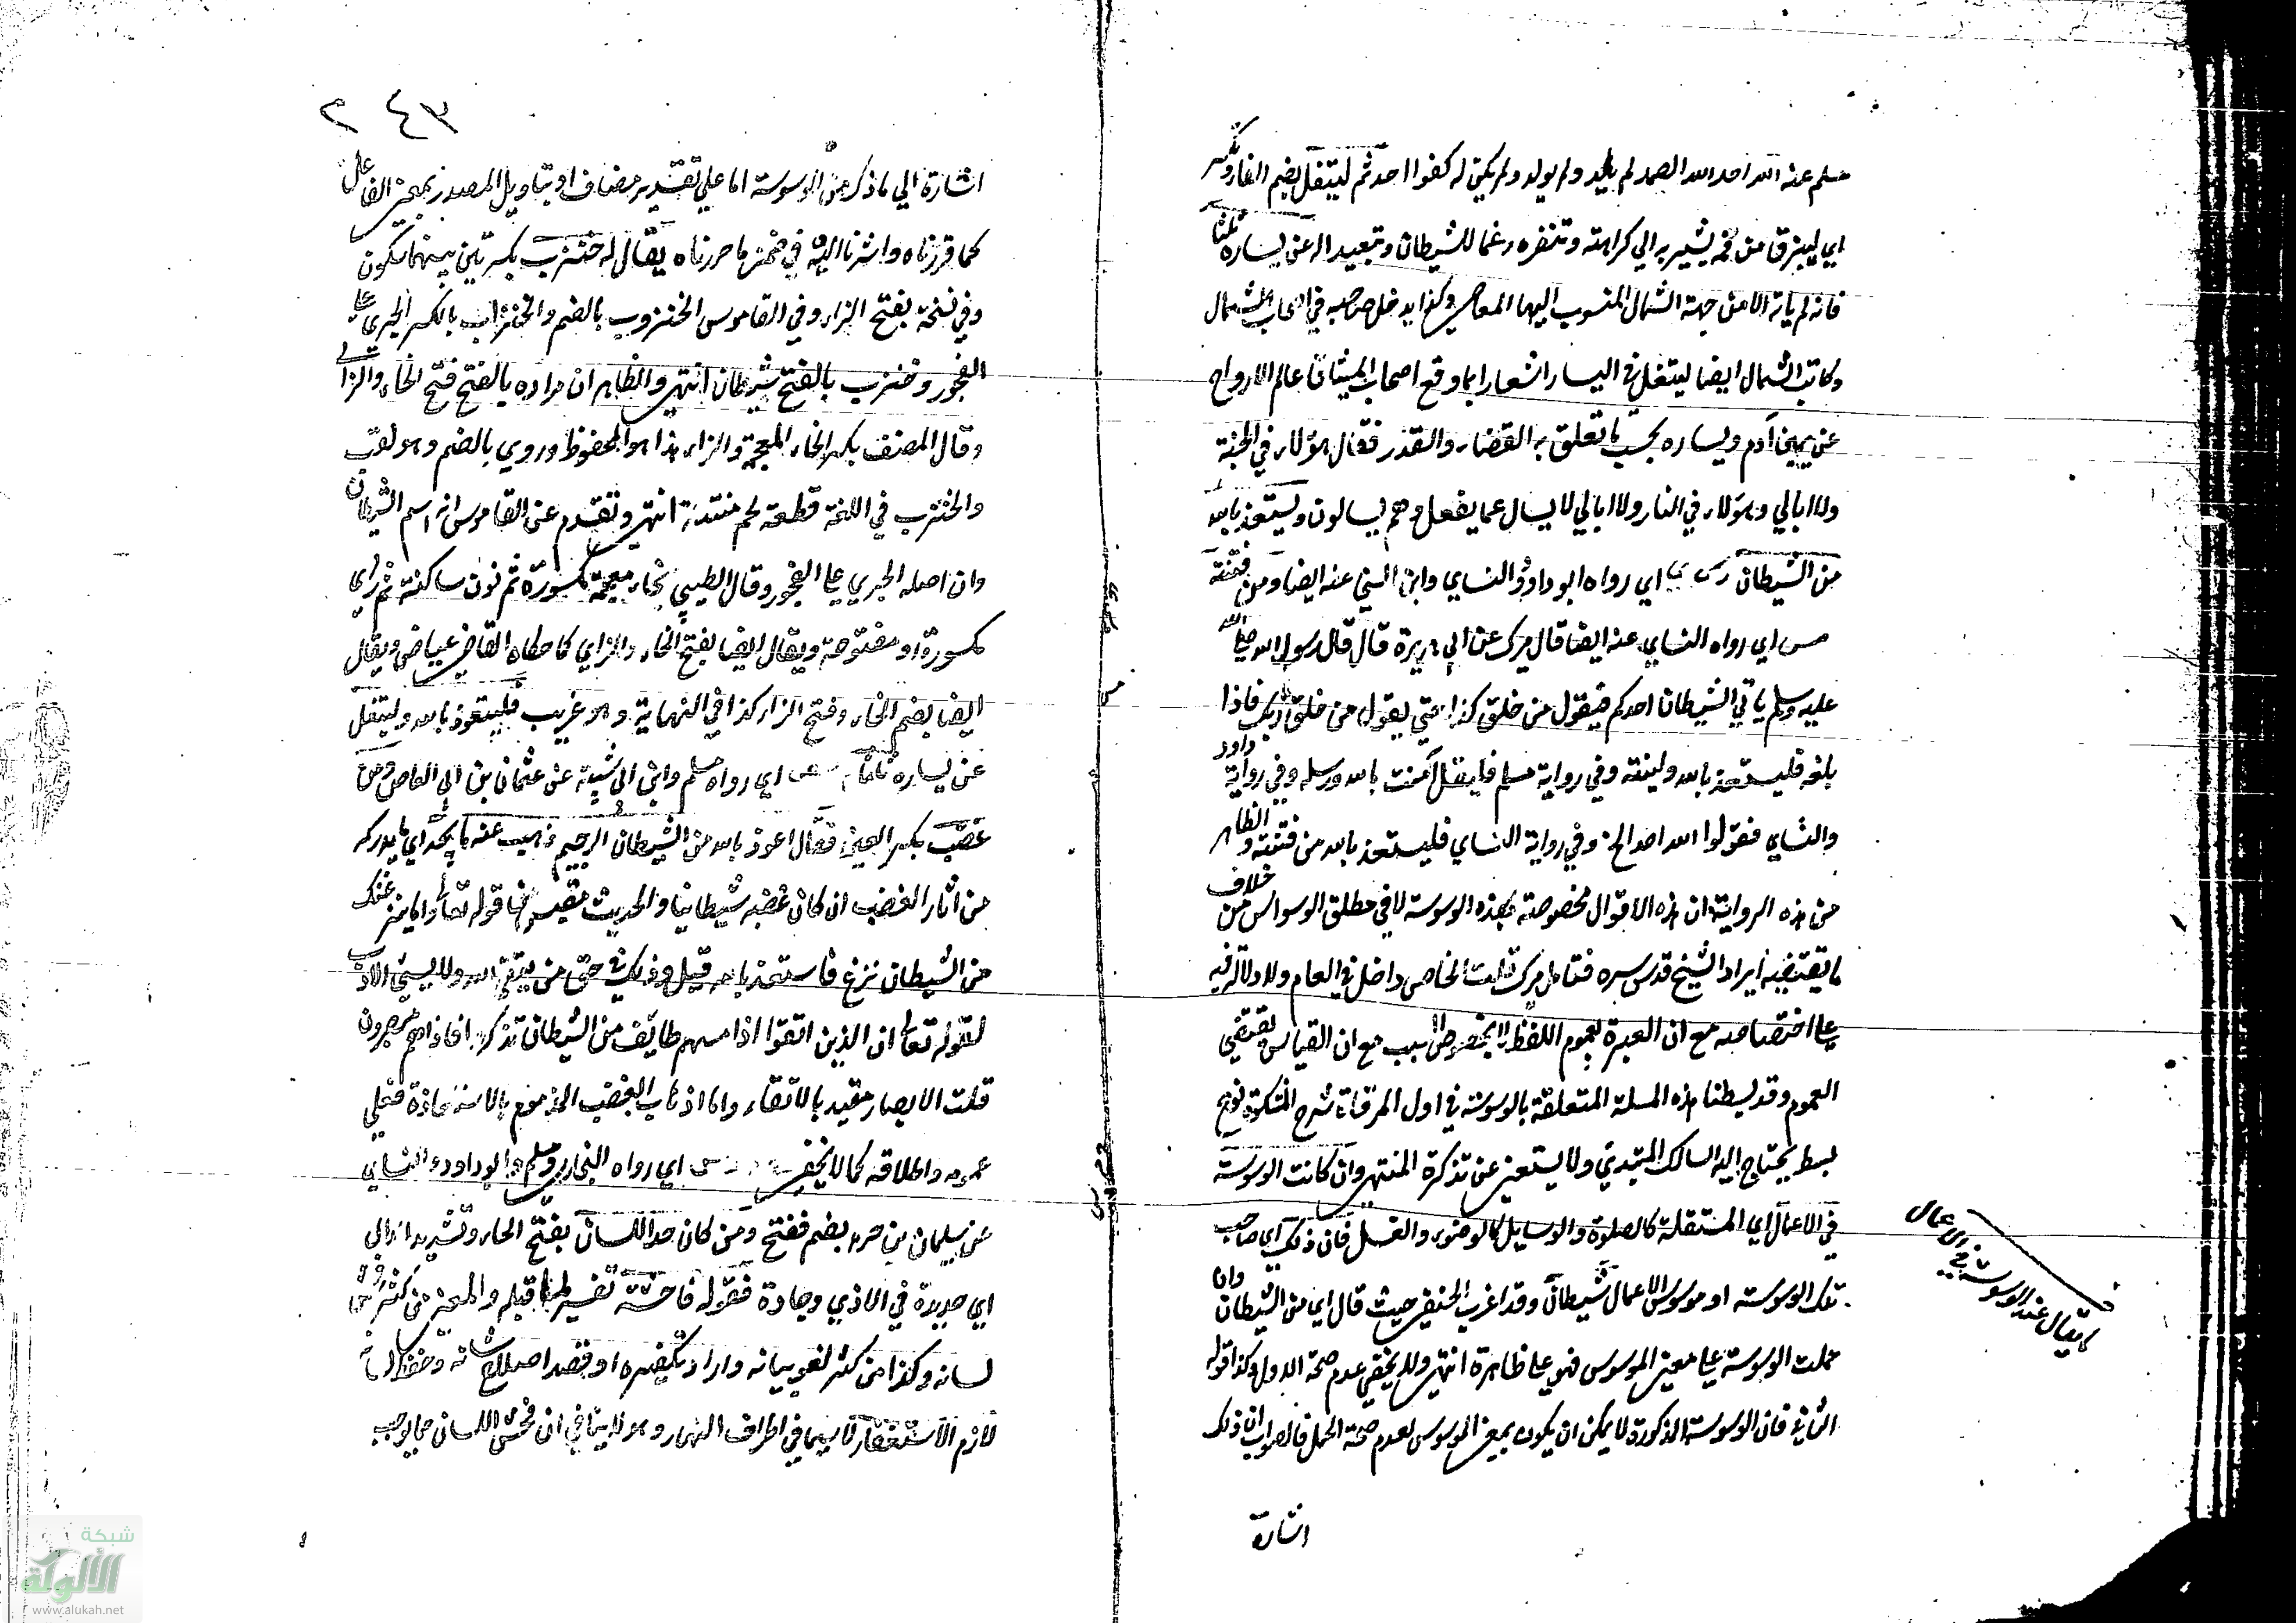 مسلم عنه الله احد الله الصمد لم يلد ولم يولد ولم يكن له كفوا احد ثم ليتفل بضم الفاء وتكسر
اي ليبزق من فمه يشير به الي كراهته وتنفره رغما للشيطان وتبعيدا له عن يساره ثلثا
فانه لم يأته الا من جهة الشمال المنسوب اليها المعاصي وكذا يدخل صاحبه في اصحاب الشمال
وكاتب الشمال ايضا ليتفل في اليسار اشعارا بما وقع اصحاب الميثاق عالم الارواح
عن يمين آدم ويساره بحسب ما تعلق به القضاء والقدر فقال هؤلاء في الجنة
ولا ابالي وهؤلاء في النار ولا ابالي لا يسال عما يفعل وهم يسالون وليستعذ بالله
من الشيطان د س ي اي رواه ابو داود والنساي وابن السني عنه ايضا ومن فتنته
س اي رواه النساي عنه ايضا قال ميرك عن ابي هريرة قال قال رسول الله صلى الله
عليه وسلم ياتي الشيطان احدكم فيقول من خلق كذا حتي يقول من خلق ربك فاذا
بلغه فليستعذ بالله ولينته وفي رواية مسلم فليقل آمنت بالله ورسله وفي رواية داود
والنساي فقولوا الله احد الخ وفي رواية النساي فليستعذ بالله من فتنته والظاهر
من هذه الرواية ان هذه الاقوال مخصوصة بهذه الوسوسة لا في مطلق الوسواس من خلاف
ما يقتضيه ايراد الشيخ قدس سره فتامل ميرك قلت الخاص داخل في العام ولا دلالة فيه
على اختصاصه مع ان العبرة بعموم اللفظ لا بخصوص السبب مع ان القياس يقتضي
العموم وقد بسطنا هذه المسلة المتعلقة بالوسوسة في اول المرقاة شرح المشكوة نوع
بسط يحتاج اليه السالك المبتدي ولا يستغني عن تذكرة المنتهي وان كانت الوسوسة
في الاعمال اي المستقلة كالصلوة والوسايل كالوضوء والغسل فان ذلك اي صاحب
تلك الوسوسة او موسوس الاعمال شيطان وقد اغرب الحنفي حيث قال اي من الشيطان وان
حملت الوسوسة على معنى الموسوس فهو على ظاهره انتهى ولا يخفي عدم صحة الاول وكذا قوله
الثاني فان الوسوسة المذكورة لا يمكن ان يكون بمعنى الموسوس لعدم صحة الحمل فالصواب ان ذلك
اشارة
ما يقال عند الوسوسة في الاعمال
٢ ٤٣
اشارة الي ما ذكر من الوسوسة اما علي تقدير مضاف او بتاويل المصدر بمعنى الفاعل
كما قررناه واشرنا اليه في ضمن ما حررناه يقال له خنزب بكسرتين بينهما سكون
وفي نسخة بفتح الزاء وفي القاموس الخنزوب بالضم والخنزاب بالكسر الجري على
الفجور وخنزب بالفتح شيطان انتهى والظاهر ان مراده بالفتح فتح الخاء والزاي
وقال المصنف بكسر الخاء المعجمة والزاء هذا هو المحفوظ وروي بالضم وهو لقب
والخنزب في اللغة قطعة لحم منتنة انتهى وتقدم عن القاموس انه اسم الشيطان
وان اصله الجري على الفجور وقال الطيبي بخاء معجمة مكسورة ثم نون ساكنة ثم زاي
مكسورة او مفتوحة ويقال ايضا بفتح الخاء والزاي كما حكاه القاضي عياض ويقال
ايضا بضم الخاء وفتح الزاء كذا في النهاية وهو غريب فليتعوذ بالله وليتفل
عن يساره ثلثا م مص اي رواه مسلم وابن ابي شيبة عن عثمان بن ابي العاص ومن
غضب بكسر العين فقال اعوذ بالله من الشيطان الرجيم ذهب عنه ما يجد اي ما يدركه
من اثار الغضب ان كان غضبه شيطانيا والحديث مقتبس من قوله تعالى واما ينزغنك
من الشيطان نزغ فاستعذ بالله قيل وذلك في حق من يتقي الله ولا يسيء الادب
لقوله تعالى ان الذين اتقوا اذا مسهم طايف من الشيطان تذكروا فاذا هم مبصرون
قلت الابصار مقيد بالاتقاء واما اذهاب الغضب المذموم بالاستعاذة فعلي
عمومه واطلاقه كما لا يخفى خ م د س اي رواه البخاري ومسلم وابو داود والنساي
عن سليمان بن صرد بضم ففتح ومن كان حد اللسان بفتح الحاء وتشديد الدال
اي حديدة في الاذي وحادة فقوله فاحشه تفسير لما قبله والمعنى من كثر
لسانه وكذا من كثر لغو بيانه واراد تكفيره او قصد اصلاح شانه وحفظ لسانه
لازم الاستغفار لا سيما في اطراف النهار وهو لا ينافي ان فحش اللسان مما يوجب
شبكة
الألوكة
www.alukah.net